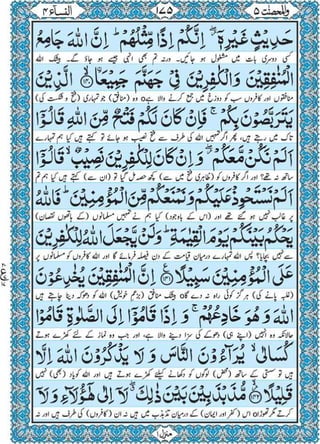 والمحصنت ۵
۱۷۵
النساء ۴
حَدِيْثٍ غَيْرِهٖۤ ۖ اِنَّكُمْ اِذًا مِّثْلُهُمْ ؕ اِنَّ اللّٰهَ جَامِعُ
کسی دوسری بات میں مشغول ہو جائیں۔ ورنہ تم بھی انہی جیسے ہو جاؤ گے۔ بیشک اللہ
الْمُنٰفِقِيْنَ وَالْكٰفِرِيْنَ فِيْ جَهَنَّمَ جَمِيْعًا ۙ﴿۱۴۰﴾ الَّذِيْنَ
منافقوں اور کافروں سب کو دوزخ میں جمع کرنے والا ہے۝ وہ (منافق) جو تمہاری (فتح و شکست کی)
يَتَرَبَّصُوْنَ بِكُمْ ۚ فَاِنْ كَانَ لَكُمْ فَتْحٌ مِّنَ اللّٰهِ قَالُوْۤا
تاک میں رہتے ہیں، پھر اگر تمہیں اللہ کی طرف سے فتح نصیب ہو جائے تو کہتے ہیں کیا ہم تمہارے
اَلَمْ نَكُنْ مَّعَكُمْ ۖ وَاِنْ كَانَ لِلْكٰفِرِيْنَ نَصِيْبٌ ۙ قَالُوْۤا
ساتھ نہ تھے؟ اور اگر کافروں کو (ظاہری فتح میں سے) کچھ حصہ مل گیا تو (ان سے) کہتے ہیں کیا ہم تم
اَلَمْ نَسْتَحْوِذْ عَلَيْكُمْ وَنَمْنَعْكُمْ مِّنَ الْمُؤْمِنِيْنَ ؕ فَاللّٰهُ
پر غالب نہیں ہو گئے تھے اور (اس کے باوجود) کیا ہم نے تمہیں مسلمانوں (کے ہاتھوں نقصان)
يَحْكُمُ بَيْنَكُمْ يَوْمَ الْقِيٰمَةِ ؕ وَلَنْ يَّجْعَلَ اللّٰهُ لِلْكٰفِرِيْنَ
سے نہیں بچایا؟ پس اللہ تمہارے درمیان قیامت کے دن فیصلہ فرمائے گا اور اللہ کافروں کو مسلمانوں پر
عَلَى الْمُؤْمِنِيْنَ سَبِيْلًا ﴿۱۴۱﴾ اِنَّ الْمُنٰفِقِيْنَ يُخٰدِعُوْنَ
(غلبہ پانے کی) ہرگز کوئی راہ نہ دے گا۝ بیشک منافق (بزعمِ خویش) اللہ کو دھوکہ دینا چاہتے ہیں
اللّٰهَ وَهُوَ خَادِعُهُمْ ۚ وَاِذَا قَامُوْۤا اِلَى الصَّلٰوةِ قَامُوْا
حالانکہ وہ انہیں (اپنے ہی) دھوکے کی سزا دینے والا ہے، اور جب وہ نماز کے لئے کھڑے ہوتے
كُسَالٰى ۙ يُرَآءُوْنَ النَّاسَ وَلَا يَذْكُرُوْنَ اللّٰهَ اِلَّا
ہیں تو سستی کے ساتھ (محض) لوگوں کو دکھانے کیلئے کھڑے ہوتے ہیں اور اللہ کو یاد (بھی) نہیں
قَلِيْلًا ﴿۱۴۲﴾ مُّذَبْذَبِيْنَ بَيْنَ ذٰلِكَ ۖ لَاۤ اِلٰى هٰۤؤُلَآءِ وَلَاۤ
کرتے مگر تھوڑا۝ اس (کفر اور ایمان) کے درمیان تذبذب میں ہیں نہ ان (کافروں) کی طرف ہیں اور نہ
منزل